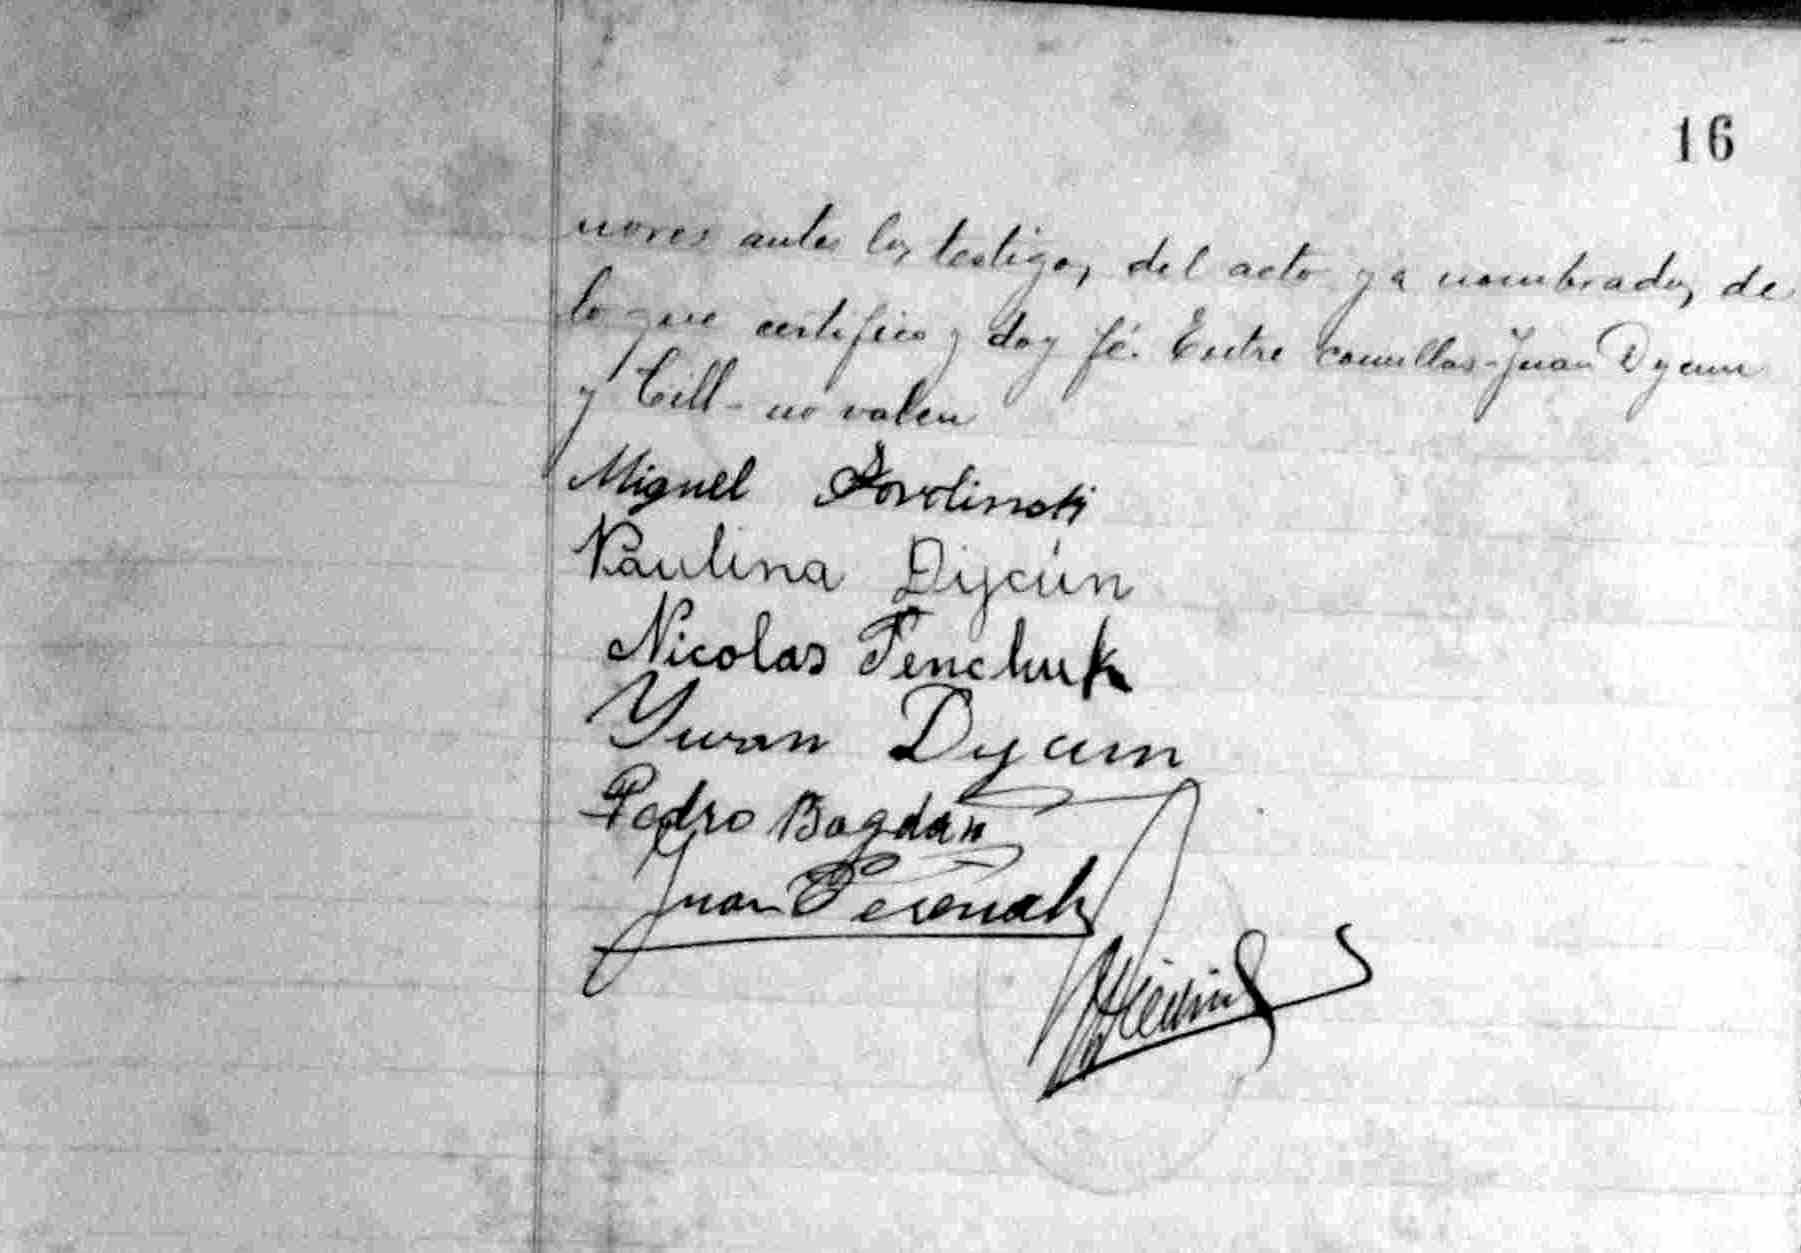 16
nores ante los testigos del acto ya nombrados, de
lo que certifico y doy fé. Entre comillas - Juan Dycun
y Cill - no valen
Miguel
Paulina Dycún
Nicolas Penchuk
Ywan Dycun
Pedro Bogdan
Juan